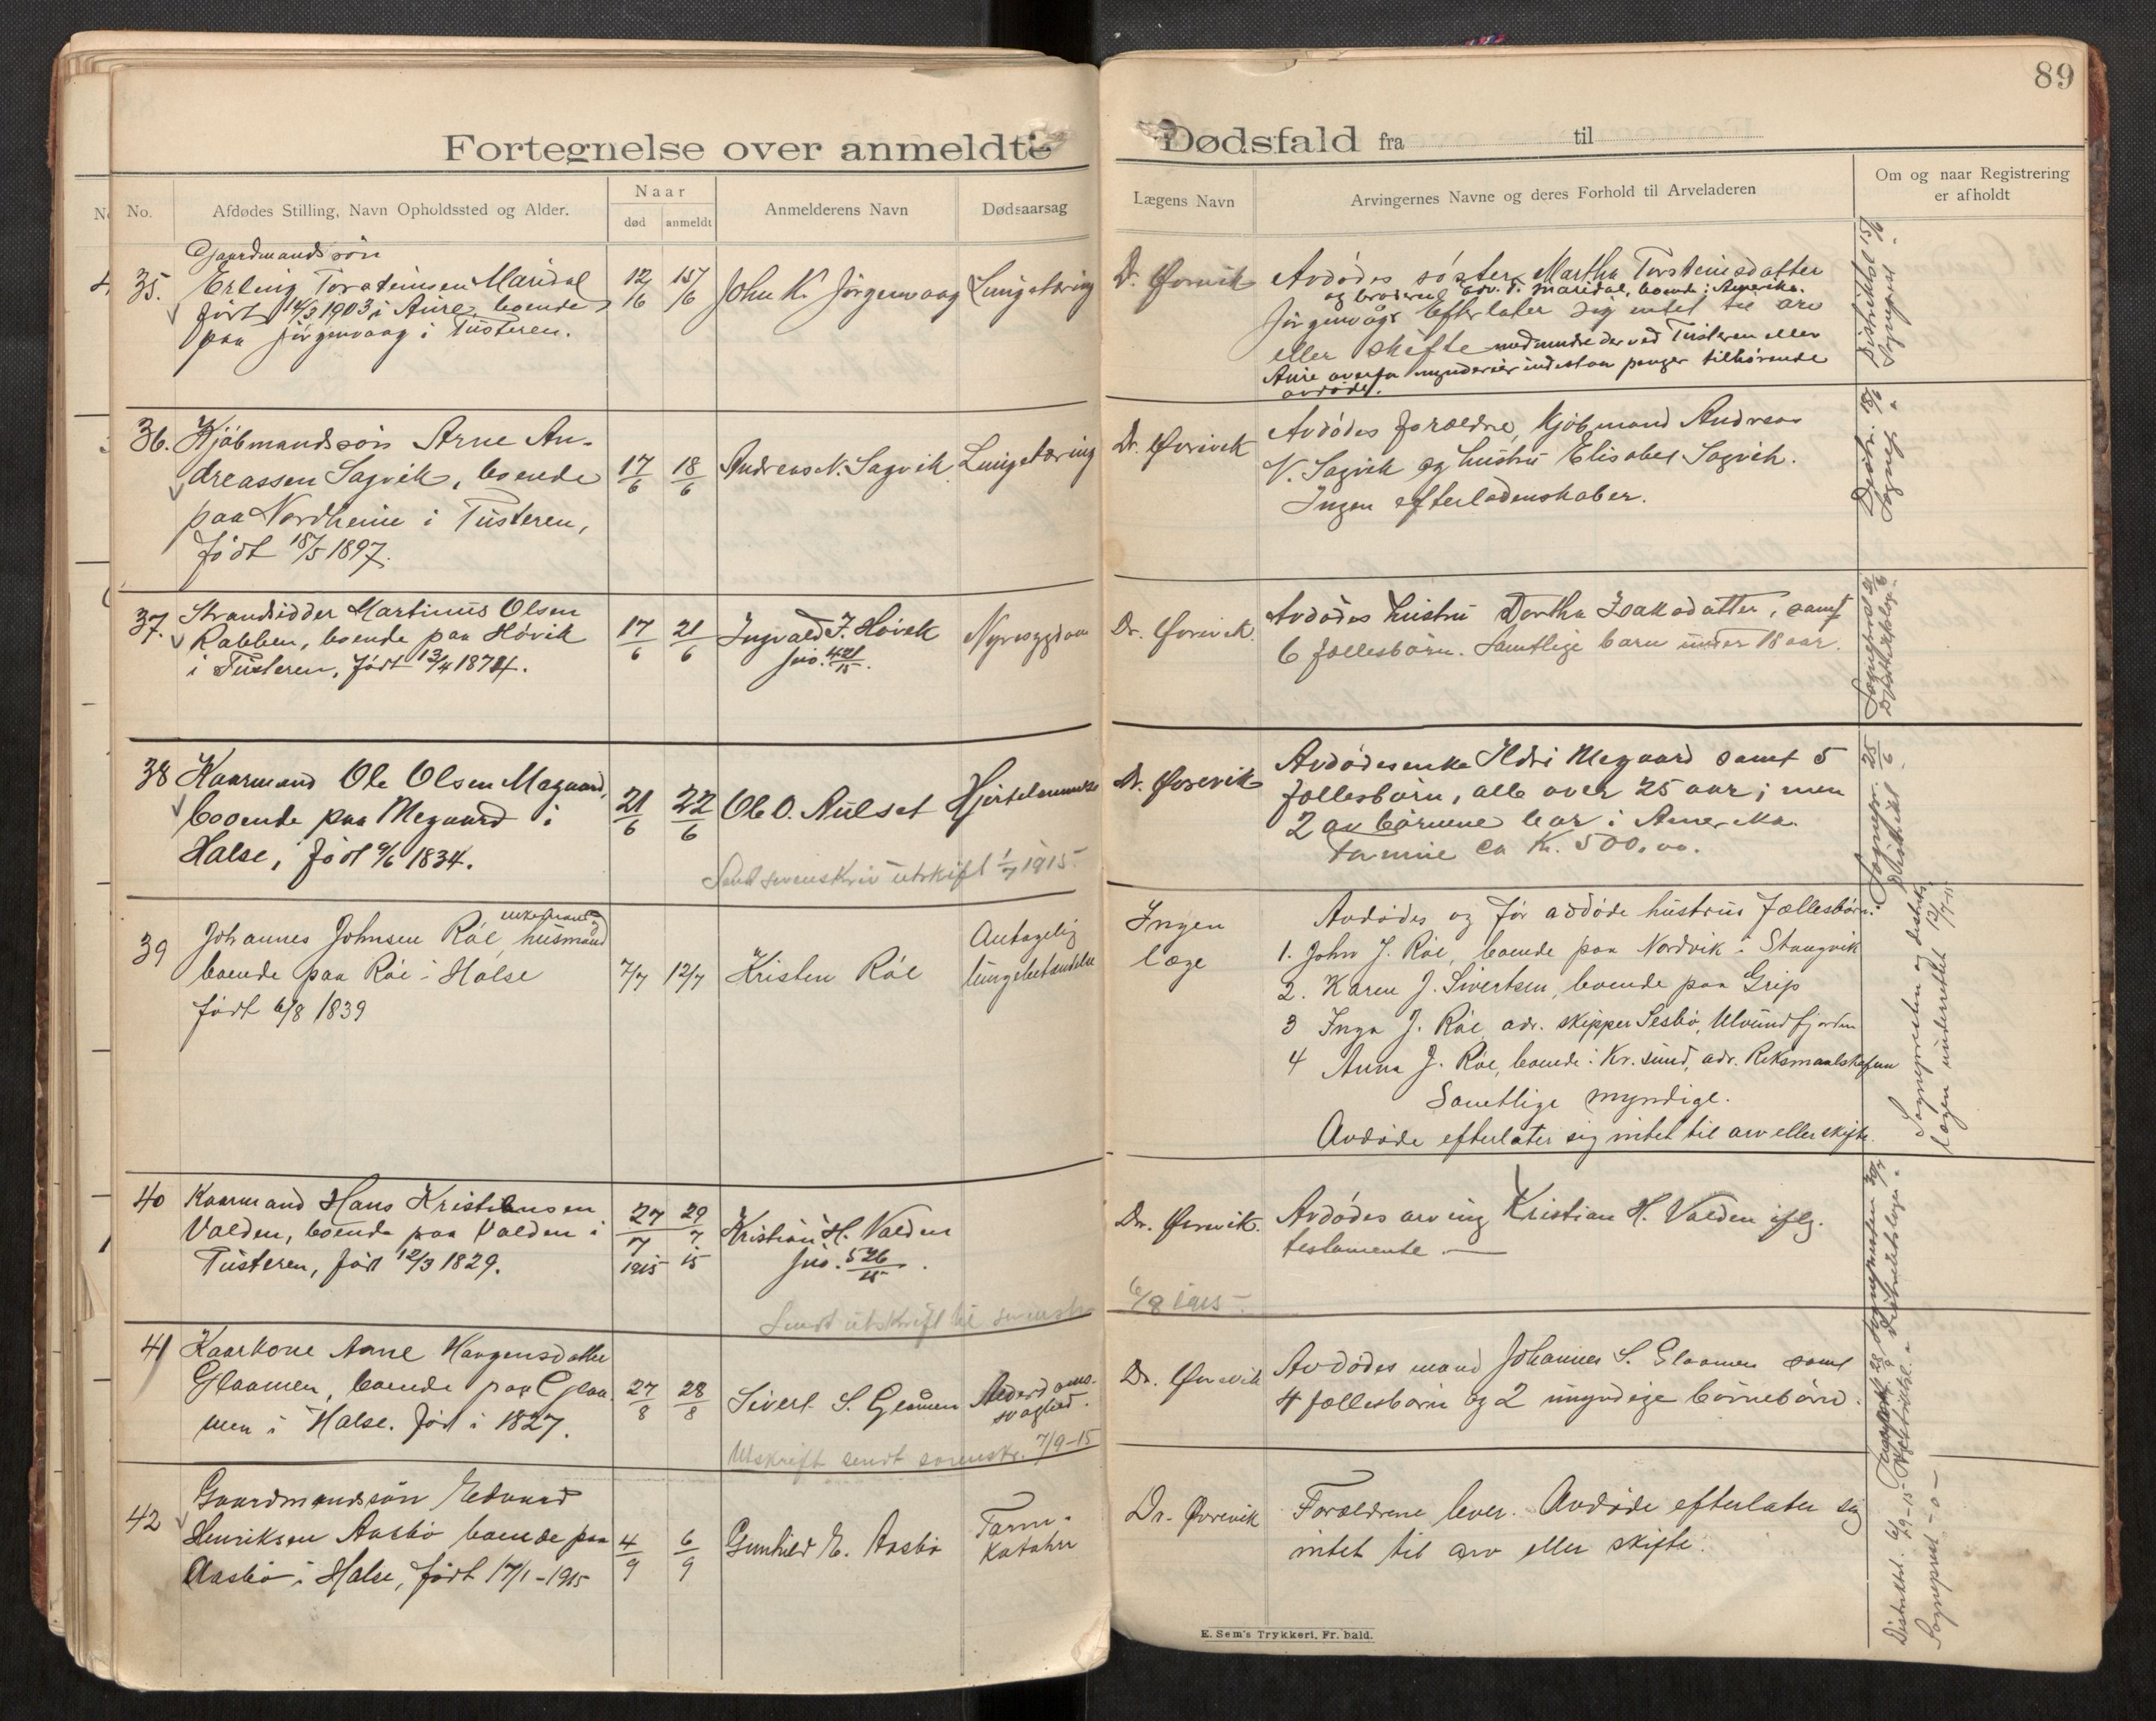 89
Fortegnelse over anmeldte Dødsfald fra til
No.
Afdødes Stilling, Navn Opholdssted og Alder.
Naar
død
anmeldt
Anmelderens Navn
Dødsaarsag
Lægens Navn
Arvingernes Navne og deres Forhold til Arveladeren
Om og naar Registrering
er afholdt
35.
Gaardmandssön
Erling Torsteinsen Maridal
født 14/3 1903 i Aure, boende
paa Jörgenvaag i Tusteren.
12/6
15/6
John K. Jörgenvaag
Lungetæring
Dr. Øvrevik
Avdödes söster Martha Torsteinsdatter
og broderen adv. T. Maridal, boende i Amerika.
Jörgenvåg. Efterlater sig intet til arv
eller skifte medmindre der ved Tusteren eller
Aure overfor mynderier indestaar penger tilhørende
avdöde.
Distriktsl. 15/6
Sognepr. "
36.
Kjöbmandssön Arne An-
dreassen Sagvik, boende
paa Nordheim i Tusteren,
født 18/5 1897.
17/6
18/6
Andreas N. Sagvik
Lungetæring
Dr. Øvrevik
Avdödes forældre, kjöbmand Andreas
N. Sagvik og hustru Elisabet Sagvik.
Ingen efterladenskaber.
Distr. 18/6
Sognepr. "
37.
Strandsidder Martinus Olsen
Rabben, boende paa Høvik
i Tusteren, født 13/4 1874.
17/6
21/6
Ingvald J. Høvik
jno. 421/15.
Nyresygdom
Dr. Øvrevik.
Avdödes hustru Dortha Isaksdatter, samt
6 fællesbörn. Samtlige barn under 18 aar.
38
Kaarmand Ole Olsen Megaard,
boende paa Megaard i
Halse, född 9/6 1834.
21/6
22/6
Ole O. Aulset
Hjertelammelse
Send sorenskriv utskrift 1/7 1915.
Dr. Øvrevik
Avdödes enke Ildri Megaard samt 5
fællesbörn, alle over 25 aar; men
2 av börnene bor i Amerika.
Formue ca Kr. 500,00.
Sognepr. 25/6
Distriktsl. "
39
enkemand og
Johannes Johnsen Röe husmand
boende paa Röe i Halse
født 6/8 1839
7/7
12/7
Kristen Röe
Antagelig
lungebetændelse
Ingen
læge
Avdödes og för avdöde hustrus fællesbörn:
1. John J. Röe, boende paa Nordvik i Stangvik
2. Karen J. Sivertsen, boende paa Grip
3 Inga J. Röe, adr. skipper Sesbö, Ulvundfjorden
4 Anna J. Röe, boende i Kr.sund, adr. Riksmaalskafeen
Samtlige myndige.
Avdöde efterlater sig intet til arv eller skifte.
Sognepresten og distrikts-
lægen underrettet 12/7-15.
40
Kaarmand Hans Kristiansen
Valden, boende paa Valden i
Tusteren, född 12/3 1829.
27/7 1915
29/7 15
Kristian H. Valden
jno. 526/15.
Sendt utskrift til sorenskr
6/8 1915.
Dr. Øvrevik.
Avdödes arving Kristian H. Valden iflg.
testamente.
Sognepresten 30/7
Distriktslægen "
41
Kaarkone Anne Haugensdatter
Glaamen, boende paa Glaa-
men i Halse. Född i 1827.
27/8
28/8
Sivert S. Glåmen
Alderdoms-
svaghed.
Utskrift sendt sorenskr. 7/9-15
Dr. Øvrevik
Avdödes mand Johannes S. Glaamen samt
4 fællesbörn og 2 umyndige börnebörn.
42
Gaardmandssön Edvard
Henriksen Aasbö boende paa
Aasbö i Halse, född 17/1-1915
4/9
6/9
Gunhild E. Aasbö
Tarm-
katahr
Dr. Øvrevik
Forældrene lever. Avdöde efterlater sig
intet til arv eller skifte.
Distriktsl. 6/9-15
Sogneprest -o-
E. Sem's Trykkeri, Fr.hald.